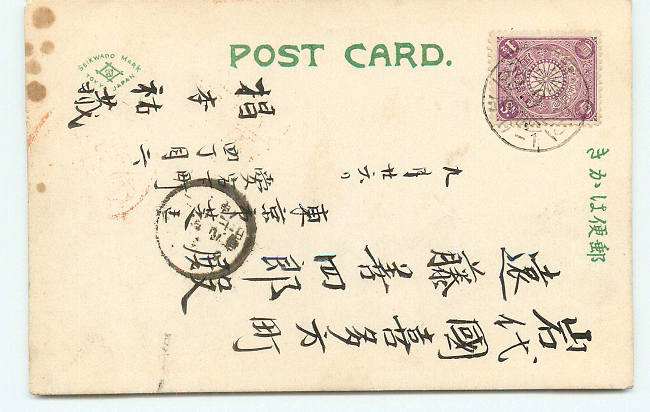 SEIKWADO MARK
TOKYO JAPAN
POST CARD.
郵便はかき
岩代國喜多方町
遠藤善四郎殿
九月廿六日
東京市芝区
愛宕町
四丁目六